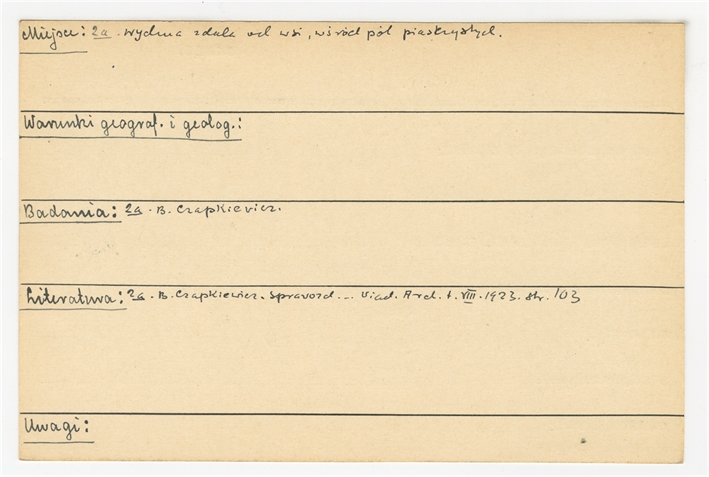 Miejsce: 2a. wydma zdala od wsi, wśród pól piaskzystych.
Warunki geograf. i geolog.:
Badania: 2a. B. Czapkiewicz.
Literatura: 2a. B. Czapkiewicz. Sprawozd... Wiad. Arch. t. VIII. 1923. str. 103
Uwagi: